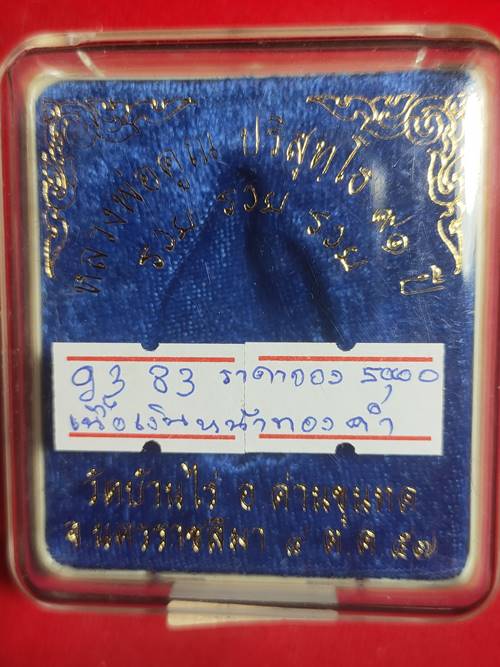 หลวงพ่อคูณ ปริสุทโธ ๙๑ ปี
รวย รวย รวย
93 83 ราคาจอง
เนื้อเงินหน้าทองคำ
วัดบ้านไร่ อ ด่านขุนทด
จ นครราชสีมา ๔ ต ค ๕๗